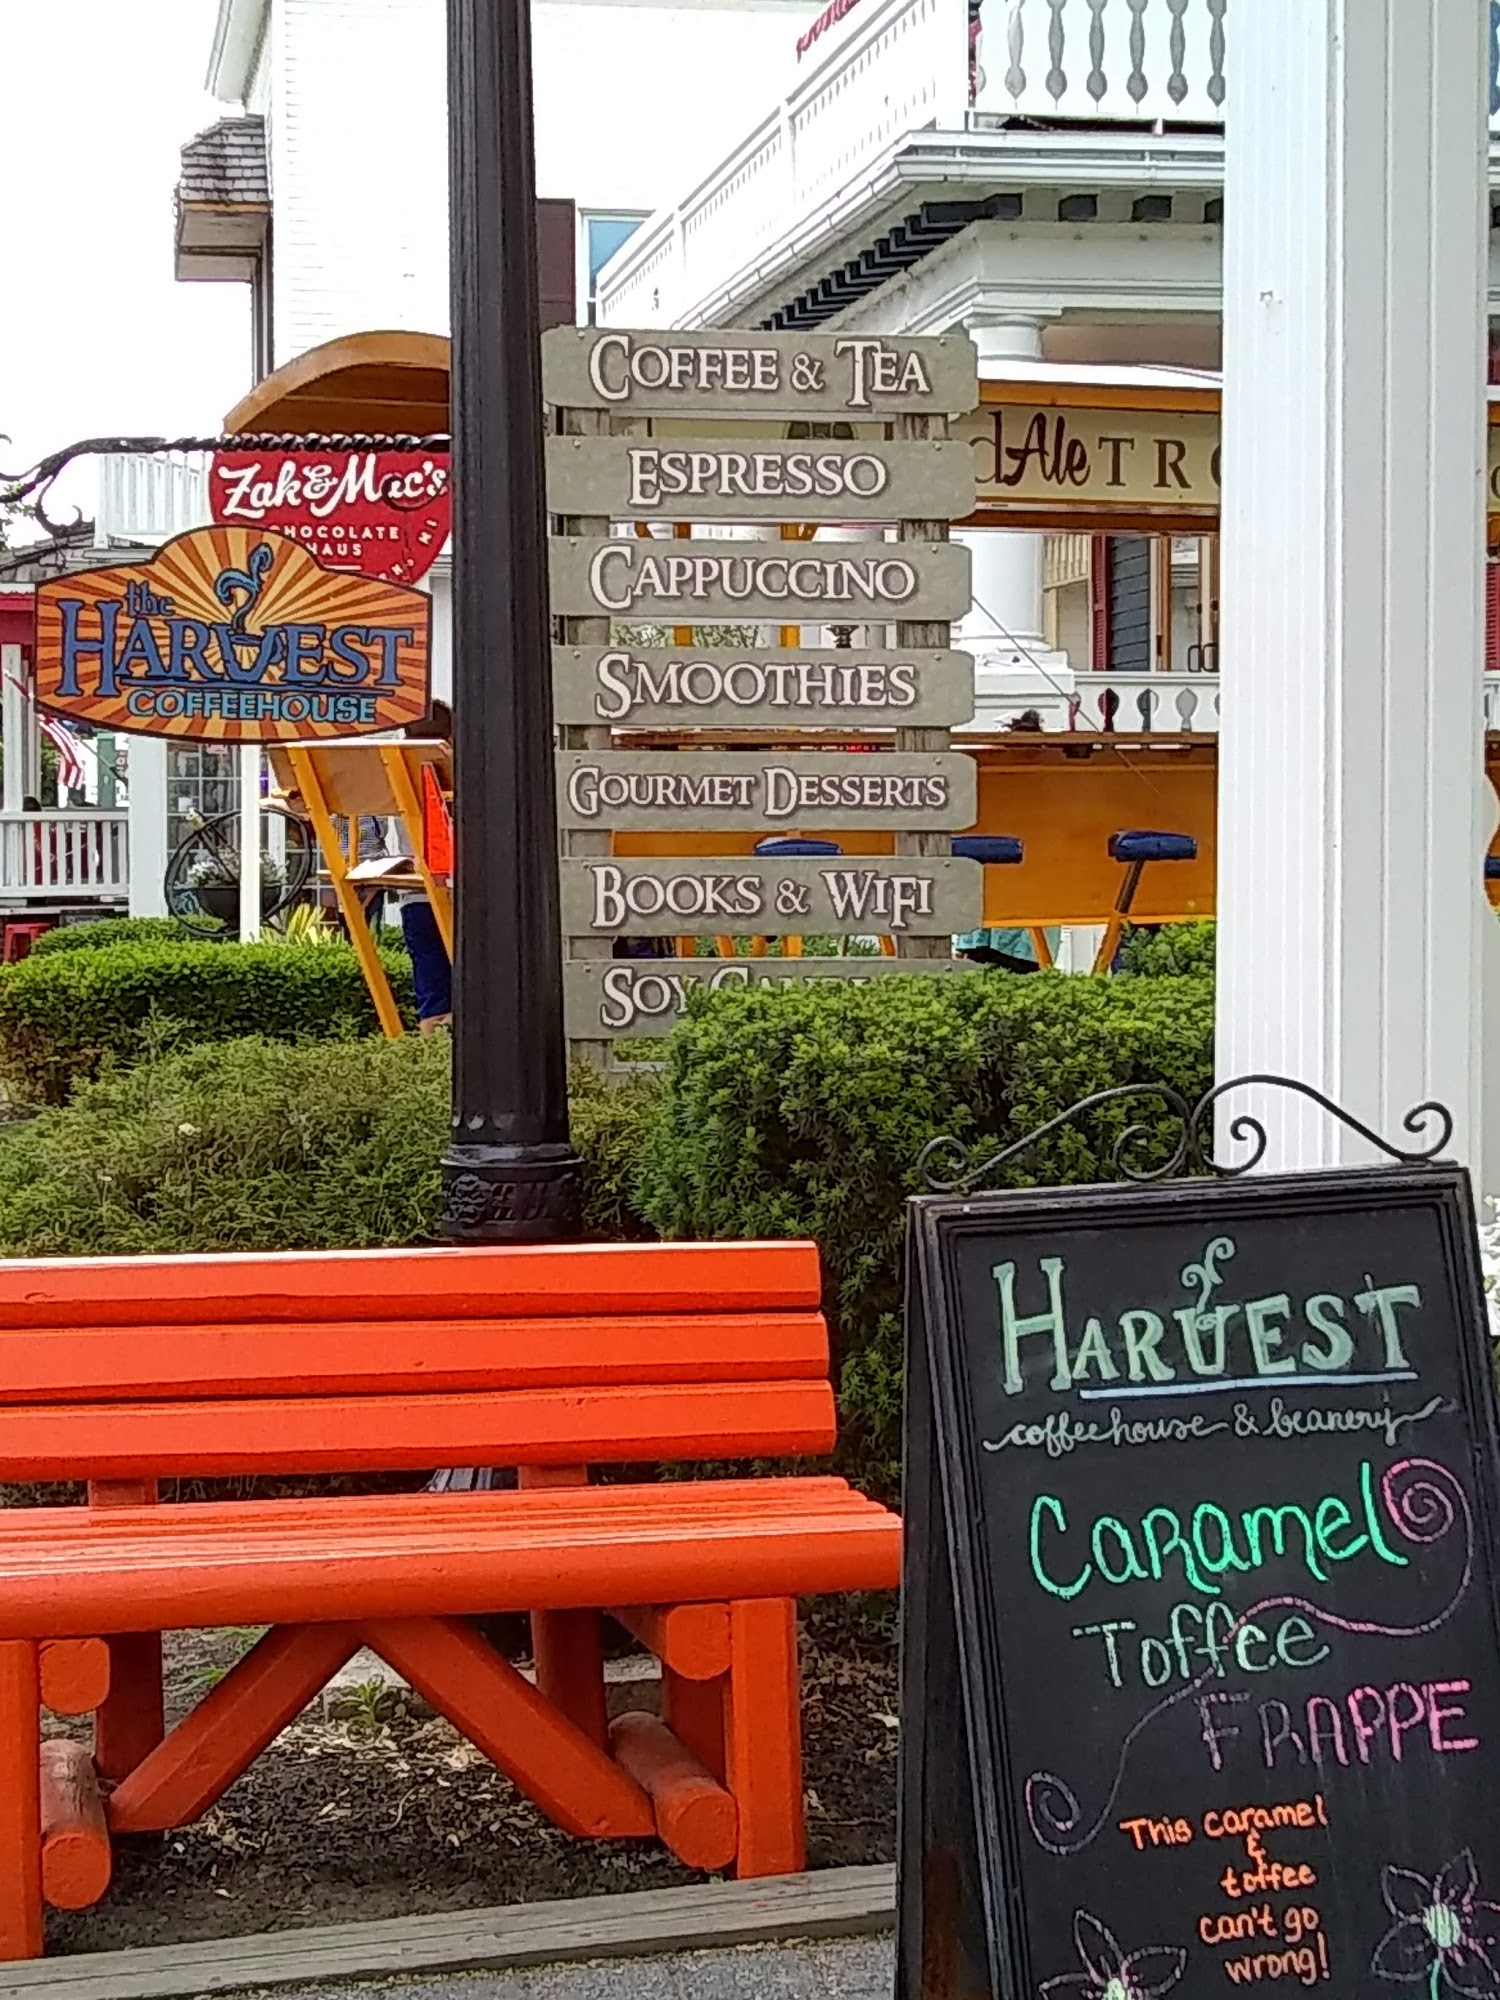 COFFEE & TEA
ESPRESSO
CAPPUCCINO
SMOOTHIES
GOURMET DESSERTS
BOOKS & WIFI
SOY
Zak & Mac's
CHOCOLATE
HAUS
the
HARVEST
COFFEEHOUSE
dAle TRO
HARVEST
coffeehouse & beanery
Caramel
Toffee
FRAPPE
This caramel
&
toffee
can't go
wrong!